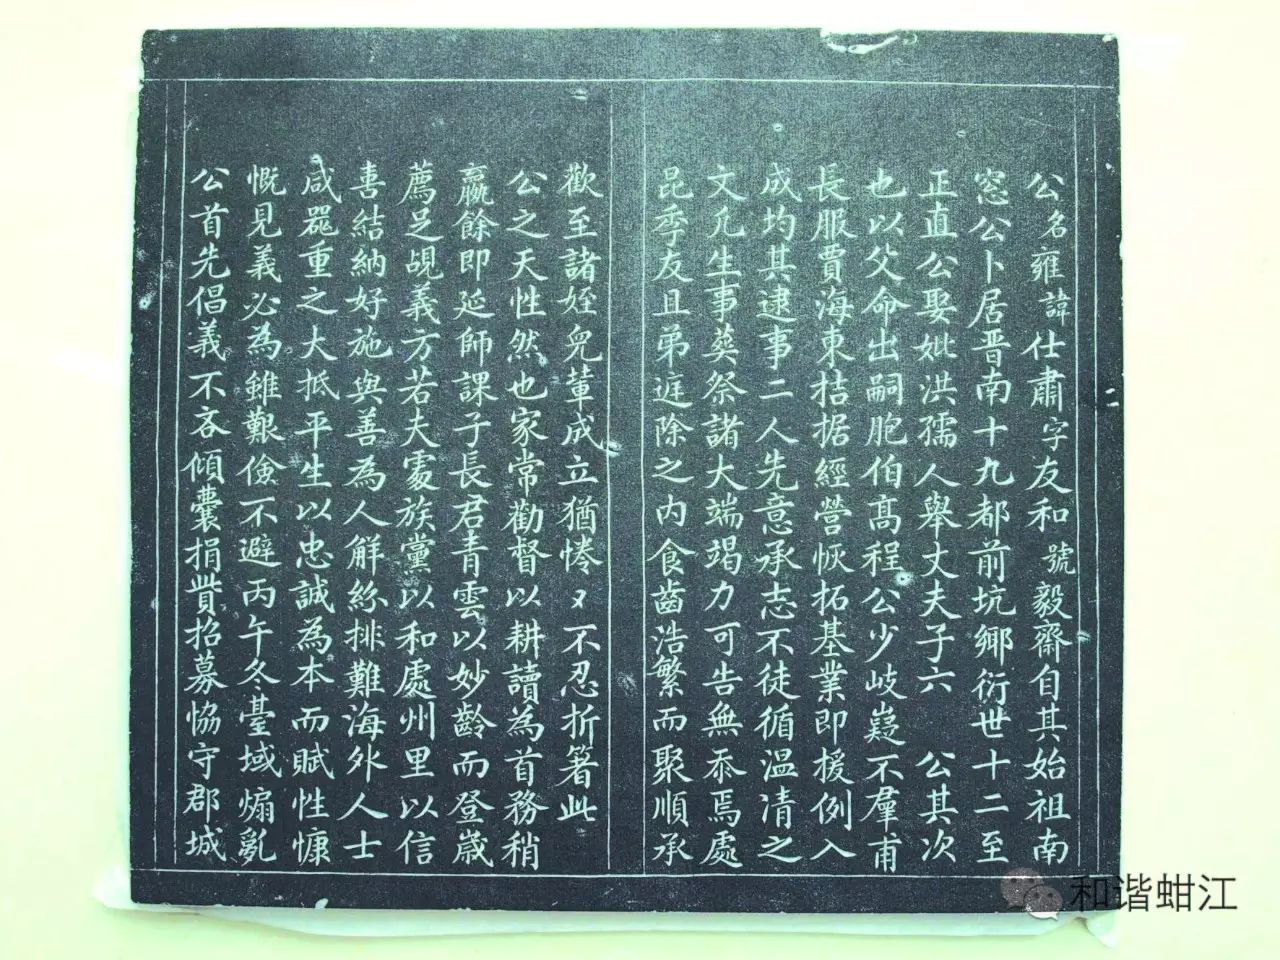 公名雍諱仕肅字友和號毅齋自其始祖南
窓公卜居晋南十九都前坑鄉衍世十二至
正直公娶妣洪孺人舉丈夫子六公其次
也以父命出嗣胞伯髙程公少岐嶷不羣甫
長服賈海東拮据經營恢拓基業即援例入
成均其逮事二人先意承志不徒循温凊之
文凡生事葵祭諸大端竭力可告無忝焉處
昆季友且弟庭除之内食齒浩繁而聚順承
歡至諸姪兒輩成立猶惓〻不忍折箸此
公之天性然也家常勸督以耕讀為首務稍
贏餘即延師課子長君青雲以妙齡而登歲
薦足覘義方若夫處族黨以和處州里以信
善結納好施與善為人解紛排難海外人士
咸噐重之大抵平生以忠誠為本而賦性慷
慨見義必為雖艱儉不避丙午冬臺域煽亂
公首先倡義不吝傾囊捐貲招募恊守郡城
和谐蚶江